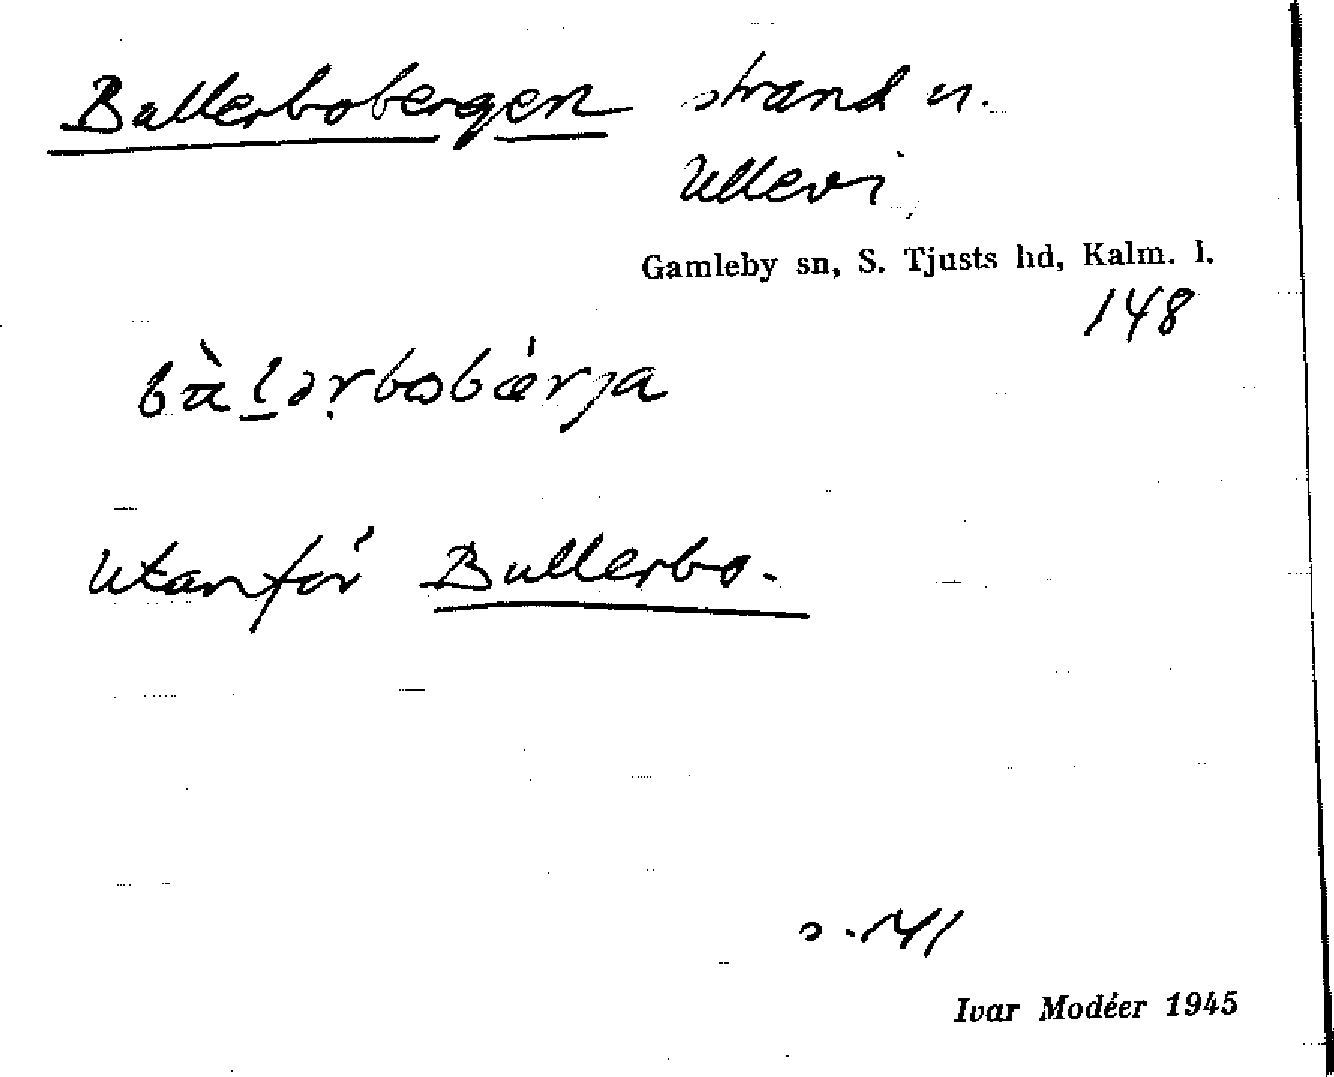 Bullerbobergen strand u.
Ullevi,
Gamleby sn, S. Tjusts hd, Kalm. l.
148
Utanför Bullerbo.
s. 141
Ivar Modéer 1945